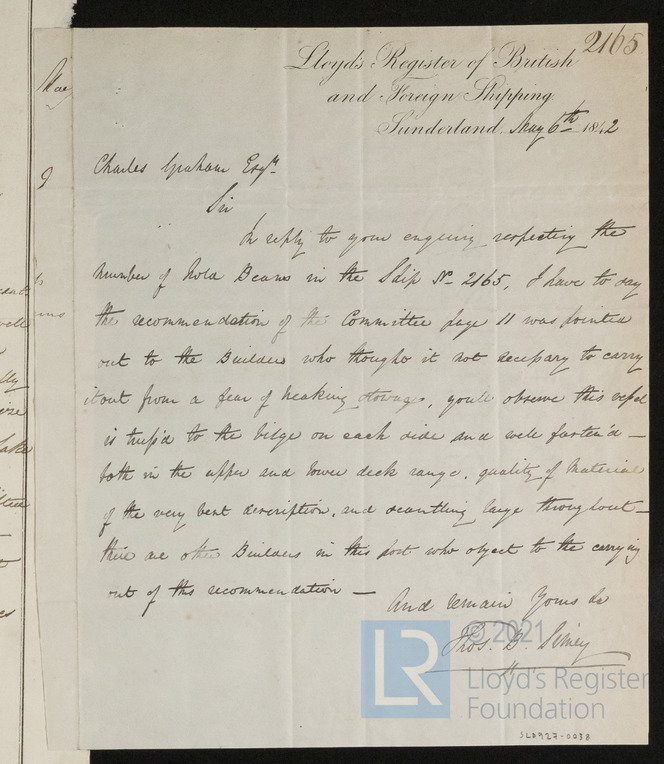 2165
Lloyd's Register of British
and Foreign Shipping.
Sunderland May 6th 1842
Charles Graham Esqr
Sir
In reply to your enquiry respecting the
number of hold Beams in the Ship No 2165, I have to say
the recommendation of the Committee page 11 was pointed
out to the Builders who thought it not necessary to carry
it out from a fear of breaking stowage, you'll observe this vessel
is truss'd to the bilge on each side and well fasten'd —
both in the upper and lower deck range, quality of Material
of the very best description, and scantling large throughout —
there are other Builders in this port who object to the carrying
out of this recommendation —
And remain Yours &c
Thos. B. Simey
© 2021
LR
Lloyd's Register
Foundation
SLD927-0038